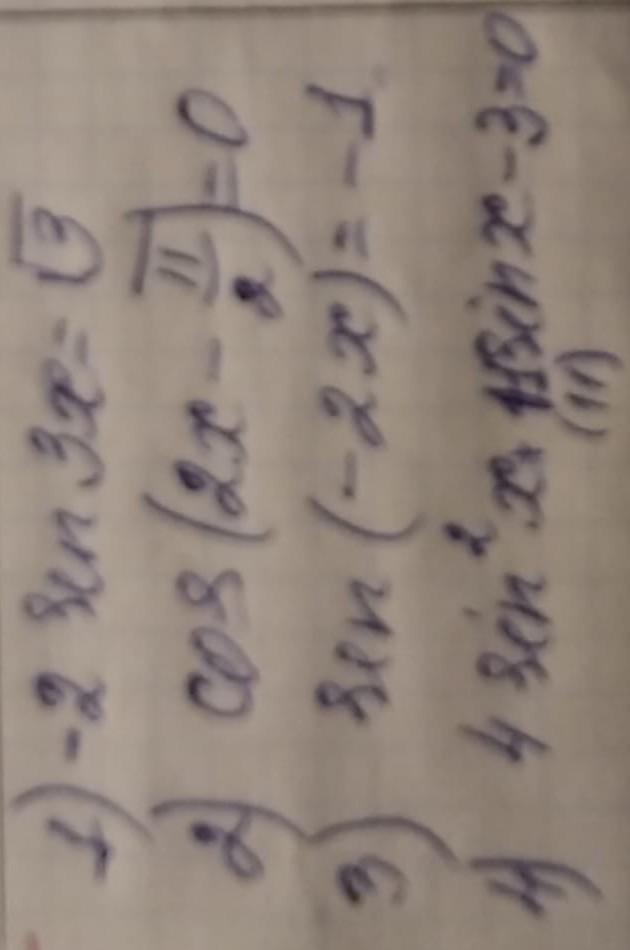 1) -2 sin 3x = √3
2) cos (2x - π/2) = 0
3) sin (-2x) = -1
4) 4 sin² x + 11 sin x - 3 = 0
(11)